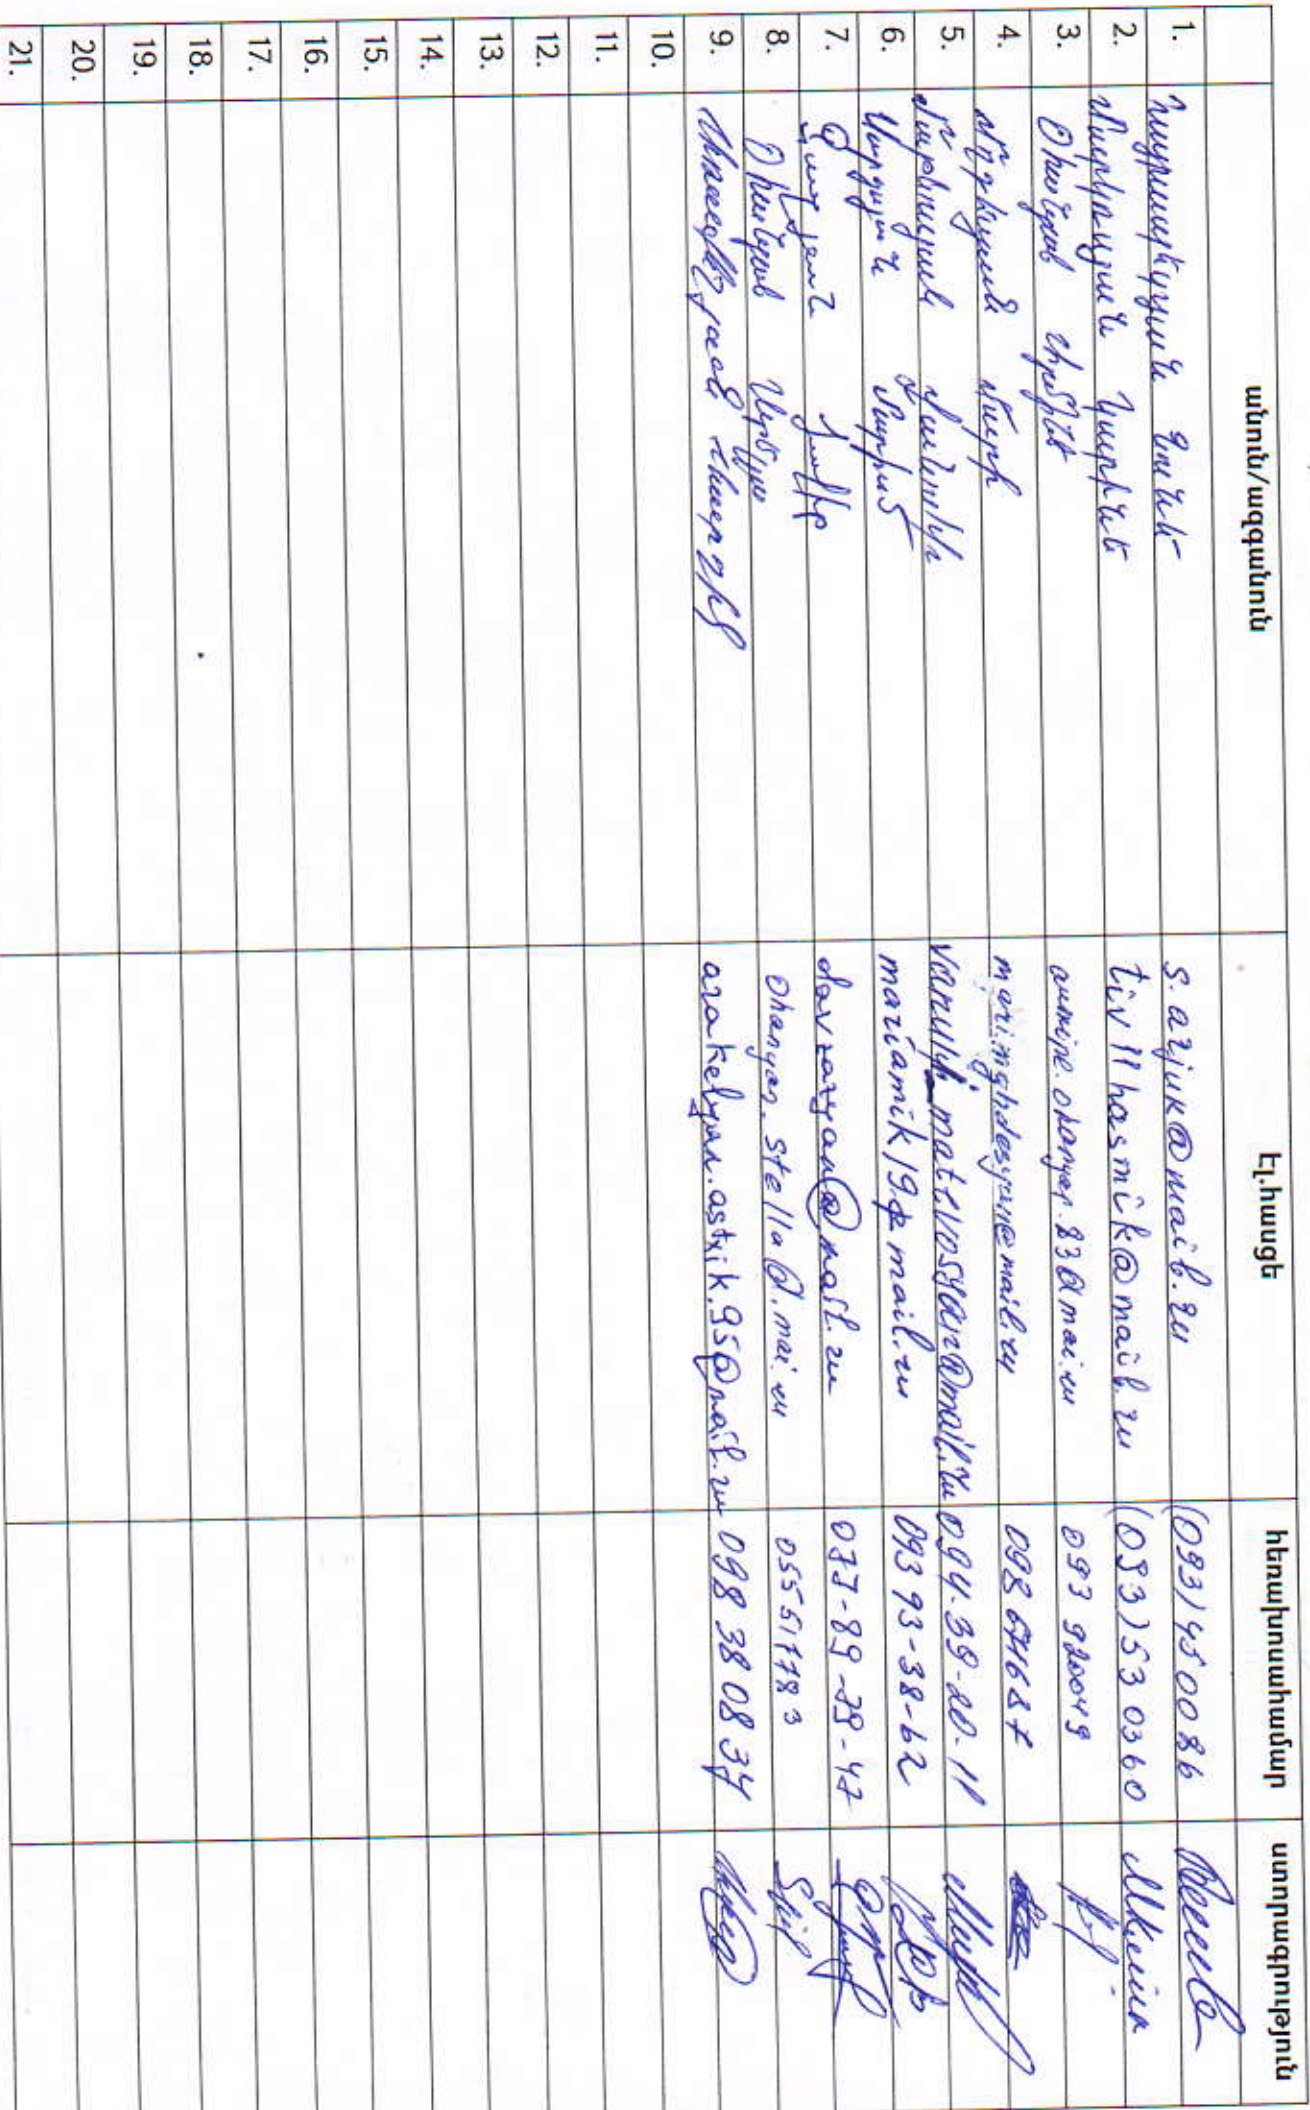 անուն/ազգանուն էլ.հասցե հեռախոսահամար ստորագրություն
1. Հայրապետյան Sոնե s.arjuk@mail.ru (093)450086
2. Մարկոսյան Կարինե tiv11hasmik@mail.ru (093)530360
3. Օհանյան 093 920049
4. Մղդեսյան Մարի mari.mghdesyan@mail.ru 098 671687
5. Մաթևոսյան Վանուհի vanuhi.matevosyan@mail.ru 094-39-20-11
6. Սարգսյան Մարիամ mariamik19@mail.ru 093 93-38-62
7. Դավիթ davzazyan@mail.ru 077-89-79-47
8. Օհանյան Ստելլա ohanyan.stella@.mai.ru 055517783
9. Առաքելյան Աստղիկ arakelyan.astxik.95@mail.ru 098 38 08 37
10.
11.
12.
13.
14.
15.
16.
17.
18.
19.
20.
21.